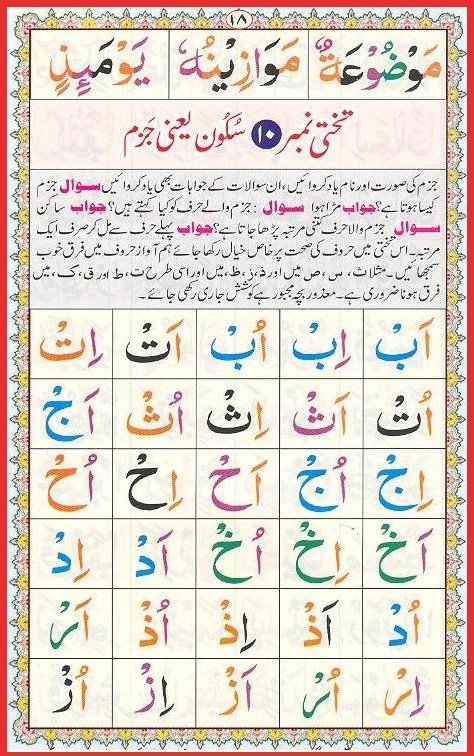 ١٨
مَوْضُوْعَةٌ مَوَازِيْنُهٗ يَوْمَئِذٍ
تختی نمبر ۱۰ سُکُون یعنی جَزم
جزم کی صورت اور نام یاد کروائیں، ان سوالات کے جوابات بھی یاد کروائیں سوال جزم
کیسا ہوتا ہے؟ جواب مڑا ہوا سوال: جزم والے حرف کو کیا کہتے ہیں؟ جواب ساکن
سوال جزم والا حرف کتنی مرتبہ پڑھا جاتا ہے؟ جواب پہلے حرف سے مل کر صرف ایک
مرتبہ۔ اس تختی میں حروف کی صحت پر خاص خیال رکھا جائے، ہم آواز حروف میں فرق خوب
سمجھائیں۔ مثلا ث، س، ص میں اور ذ، ز، ظ، میں اور اسی طرح ت، ط اور ق، ک، میں
فرق ہونا ضروری ہے۔ معذور بچہ مجبور ہے کوشش جاری رکھی جائے۔
اَبْ اِبْ اُبْ اَتْ اِتْ
اُتْ اَثْ اِثْ اُثْ اَجْ
اِجْ اُجْ اَحْ اِحْ اُحْ
اَخْ اِخْ اُخْ اَدْ اِدْ
اُدْ اَذْ اِذْ اُذْ اَرْ
اِرْ اُرْ اَزْ اِزْ اُزْ